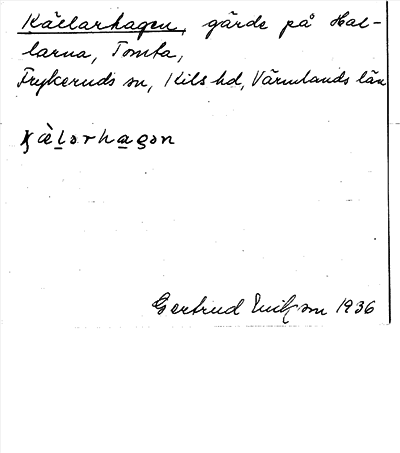 Källarhagen, gärde på Hal-
larna, Tomta,
Frykeruds sn, Kils hd, Värmlands län
Gertrud Erikson 1936